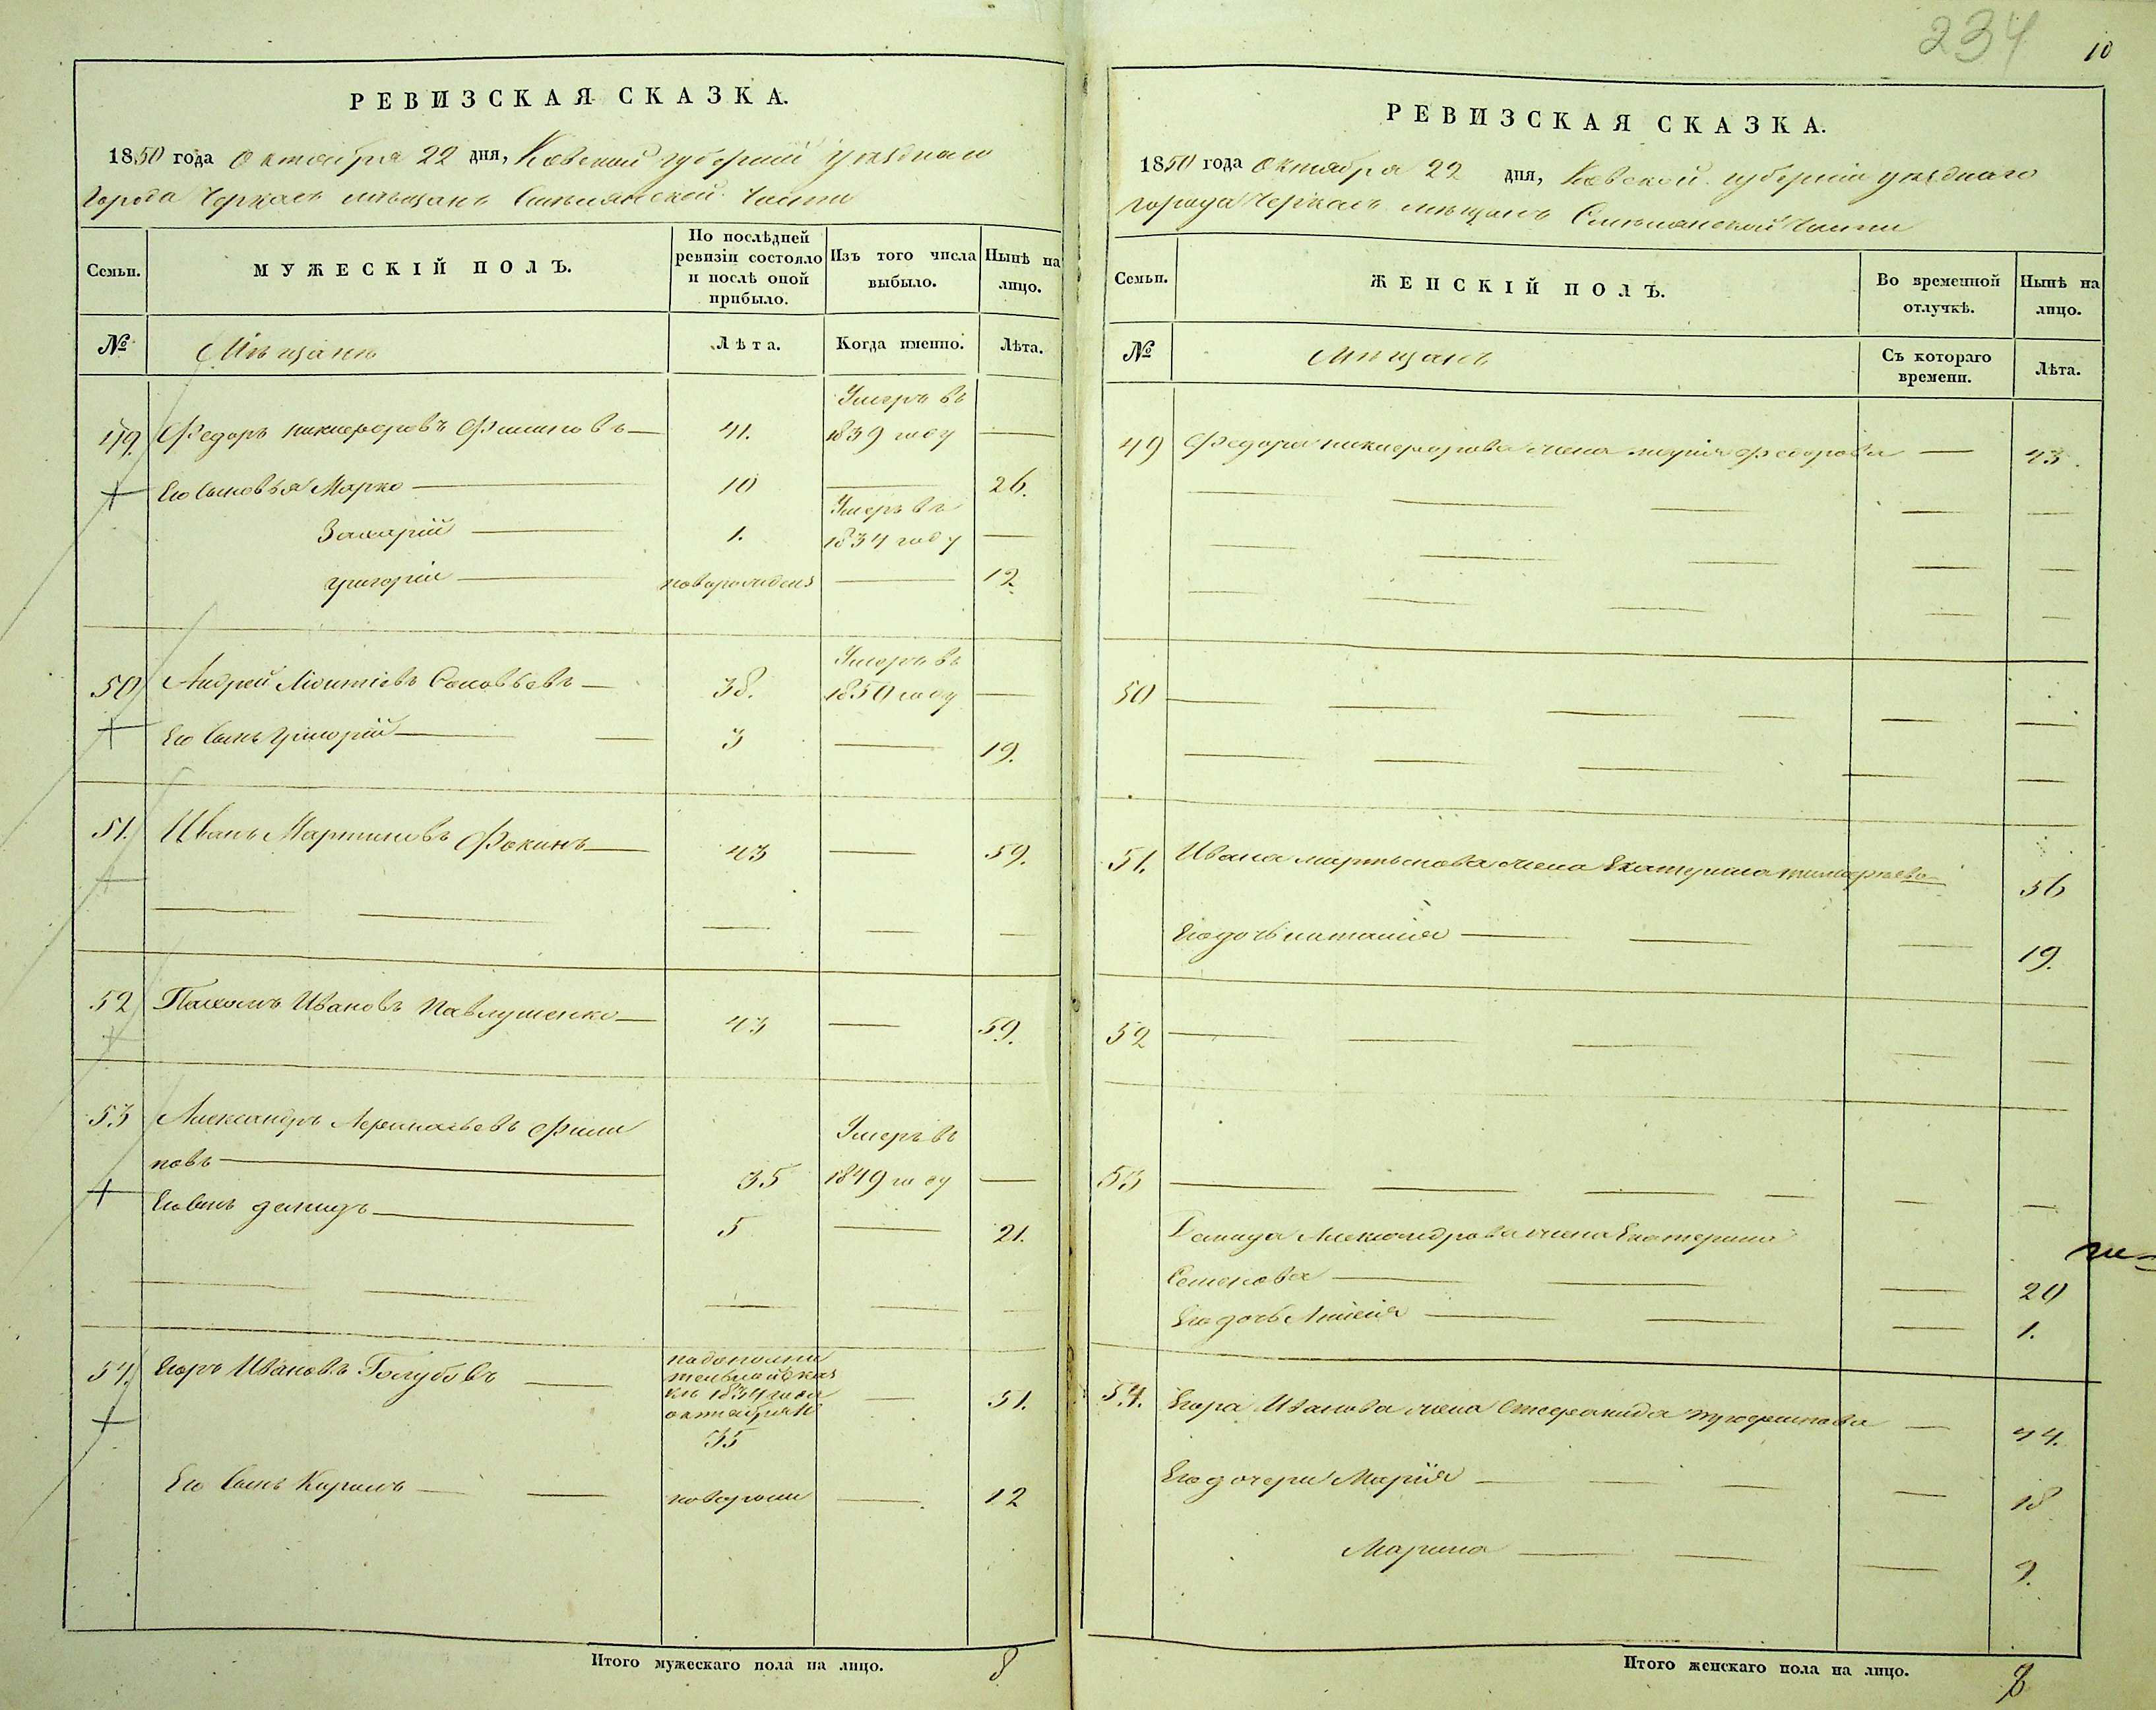 234
10
РЕВИЗСКАЯ СКАЗКА.
1850 года Октября 22 дня, Кіевской губерніи уѣзднаго
города Черкасъ мѣщанъ Смѣлянской части
Семьи.
МУЖЕСКІЙ ПОЛЪ.
По послѣдней ревизіи состояло и послѣ оной прибыло.
Изъ того числа выбыло.
Нынѣ на лицо.
№
Мѣщане
Лѣта.
Когда именно.
Лѣта.
Умеръ въ
49. Федоръ Никифоровъ 41. 1839 году —
Его сыновья Марко — 10 — 26.
Умеръ въ
Захарій — 1. 1834 году —
Григорій — новорожденъ — 12.
Умеръ въ
50 Андрей Соловьевъ — 38. 1850 году —
Его сынъ Григорій — 3 — 19.
51. Иванъ Мартиновъ Фокинъ — 43 — 59.
52 Пахомъ Ивановъ Павлушенко — 43 — 59.
53 Александръ Фили Умеръ въ
повъ — 35 1849 году —
Его сынъ Демидъ — 5 — 21.
54. Егоръ Ивановъ Голубовъ —
по дополни
тельной
1834 года
октября 10
35
— 51.
Его сынъ — новорож — 12
Итого мужескаго пола на лицо. 8
РЕВИЗСКАЯ СКАЗКА.
1850 года Октября 22 дня, Кіевской губерніи уѣзднаго
города Черкасъ мѣщанъ Смѣлянской части
Семьи.
ЖЕНСКІЙ ПОЛЪ.
Во временной отлучкѣ.
Нынѣ на лицо.
№
Мѣщанъ
Съ котораго времени.
Лѣта.
49 Федора Никифорова жена Федорова — 43.
50
51. Ивана Мартынова жена Екатерина 56
Его дочь Наталія — 19.
52
53
Демида Александрова жена Екатерина
Семенова — 20
Его дочь — 1.
54. Егора Иванова жена Степанида — 44.
Его дочери Марія — 18
Марина — 9.
Итого женскаго пола на лицо. 8